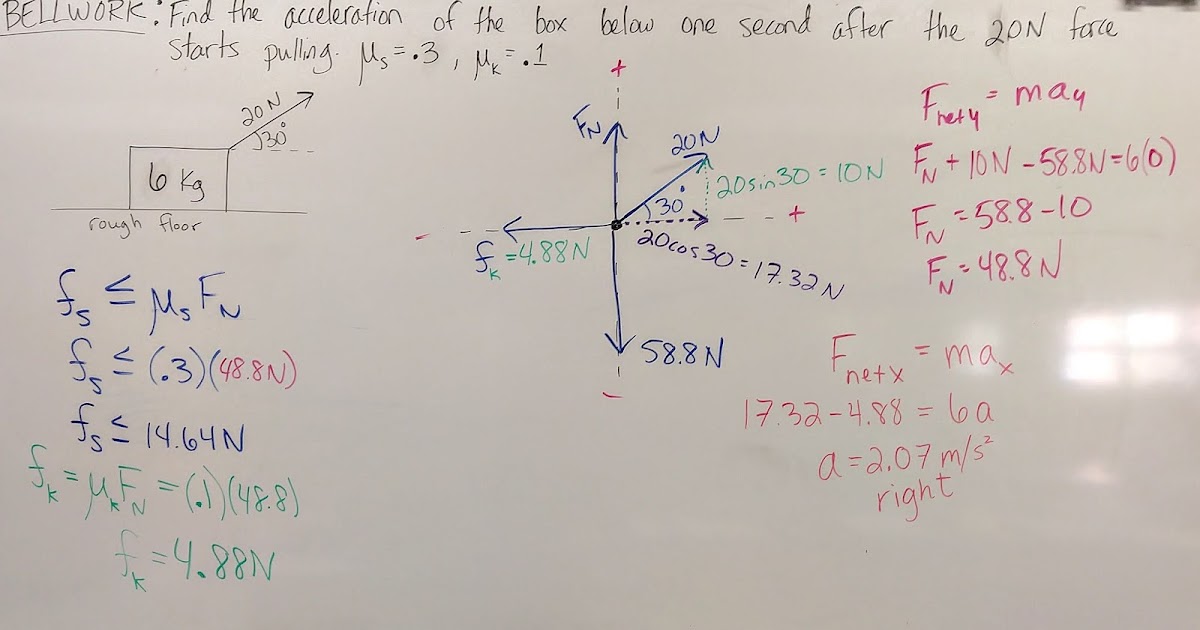 BELLWORK: Find the acceleration of the box below one second after the 20N force
starts pulling. μs = .3, μk = .1
20N
30°
6 Kg
rough floor
fs ≤ μs FN
fs ≤ (.3)(48.8N)
fs ≤ 14.64N
fk = μk FN = (.1)(48.8)
fk = 4.88N
+
FN
20N
20sin30 = 10N
30°
+
-
fk = 4.88N
20cos30 = 17.32N
58.8N
-
Fnety = may
FN + 10N - 58.8N = 6(0)
FN = 58.8 - 10
FN = 48.8N
Fnetx = max
17.32 - 4.88 = 6a
a = 2.07 m/s²
right